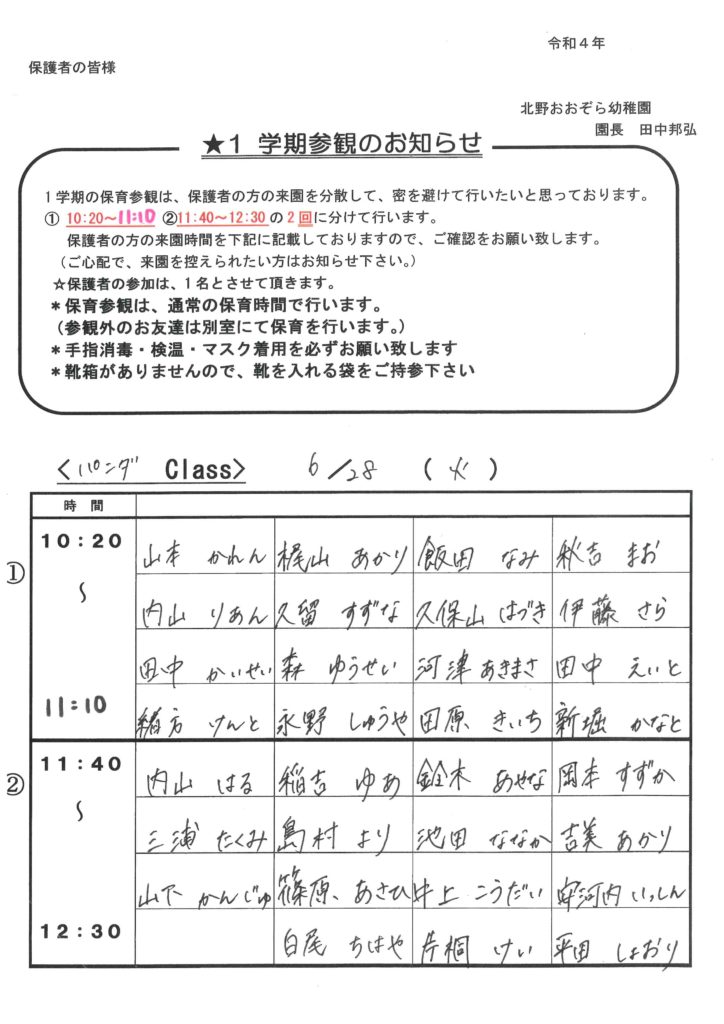 令和４年
保護者の皆様
北野おおぞら幼稚園
園長　田中邦弘
★１ 学期参観のお知らせ
１学期の保育参観は、保護者の方の来園を分散して、密を避けて行いたいと思っております。
① 10:20～11:10 ②11:40～12:30 の２回に分けて行います。
保護者の方の来園時間を下記に記載しておりますので、ご確認をお願い致します。
（ご心配で、来園を控えられたい方はお知らせ下さい。）
☆保護者の参加は、１名とさせて頂きます。
＊保育参観は、通常の保育時間で行います。
（参観外のお友達は別室にて保育を行います。）
＊手指消毒・検温・マスク着用を必ずお願い致します
＊靴箱がありませんので、靴を入れる袋をご持参下さい
<パンダ Class> 6/28 (火)
時 間
① 10:20 ～ 11:10
山本 かれん 梶山 あかり 飯田 なみ 秋吉 まお
内山 りあん 久留 すずな 久保山 はづき 伊藤 さら
田中 かいせい 森 ゆうせい 河津 あきまさ 田中 えいと
緒方 けんと 永野 しゅうや 田原 きいち 新堀 かなと
② 11:40 ～ 12:30
内山 はる 稲吉 ゆあ 鈴木 あやな 岡本 すずか
三浦 たくみ 島村 より 池田 ななか 吉美 あかり
山下 かんじゅ 篠原 あさひ 井上 こうだい 宇河内 いっしん
白尾 ちはや 片桐 けい 平田 しおり